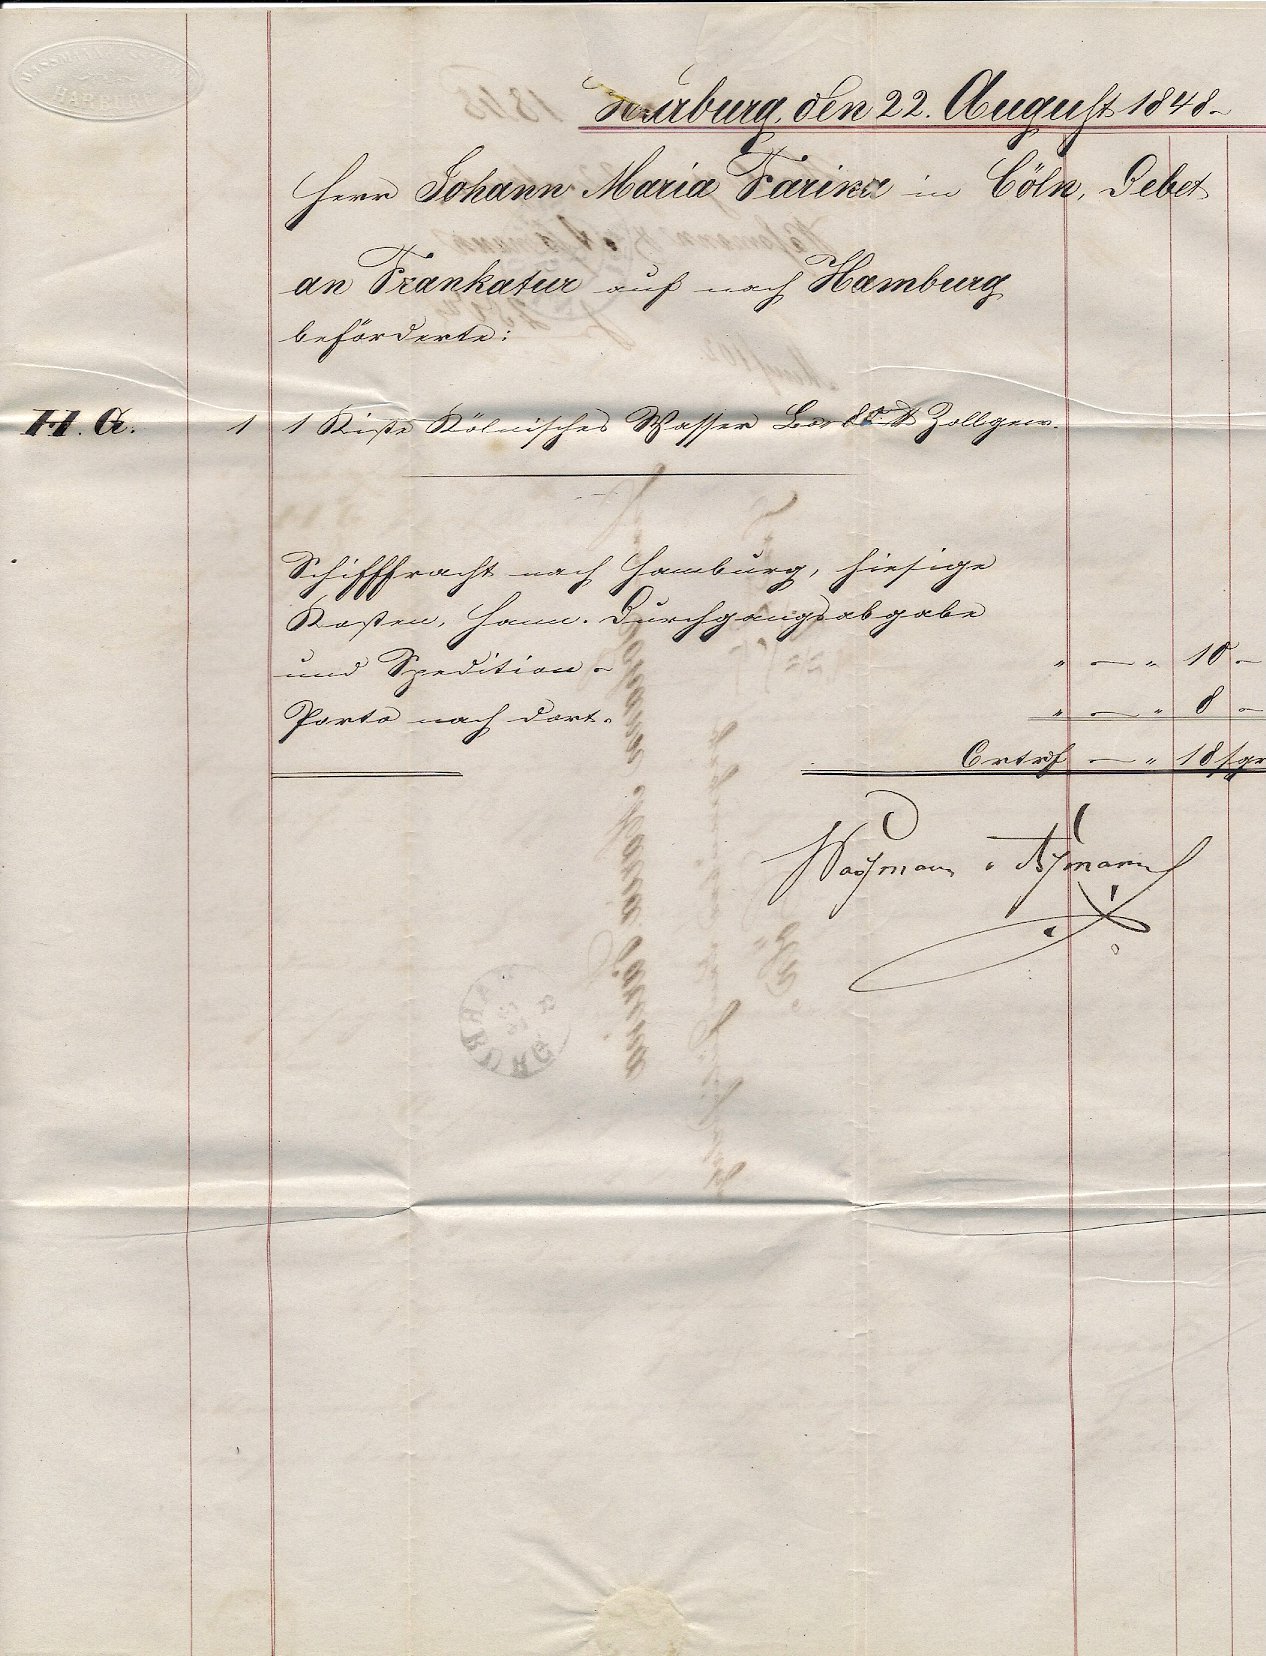 HARBURG
Harburg, den 22. August 1848.
Herr Johann Maria Farina in Cöln, Debet
an Frankatur auf nach Hamburg
beförderte:
H.G. 1 1 Kiste Kölnisches Wasser 80 ℔ Zollgew.
Schifffracht nach Hamburg, hiesige
Kosten, Hann. Durchgangsabgabe
und Spedition. " — " 10 —
Porto nach dort. " — " 8 —
— " 18 sgr